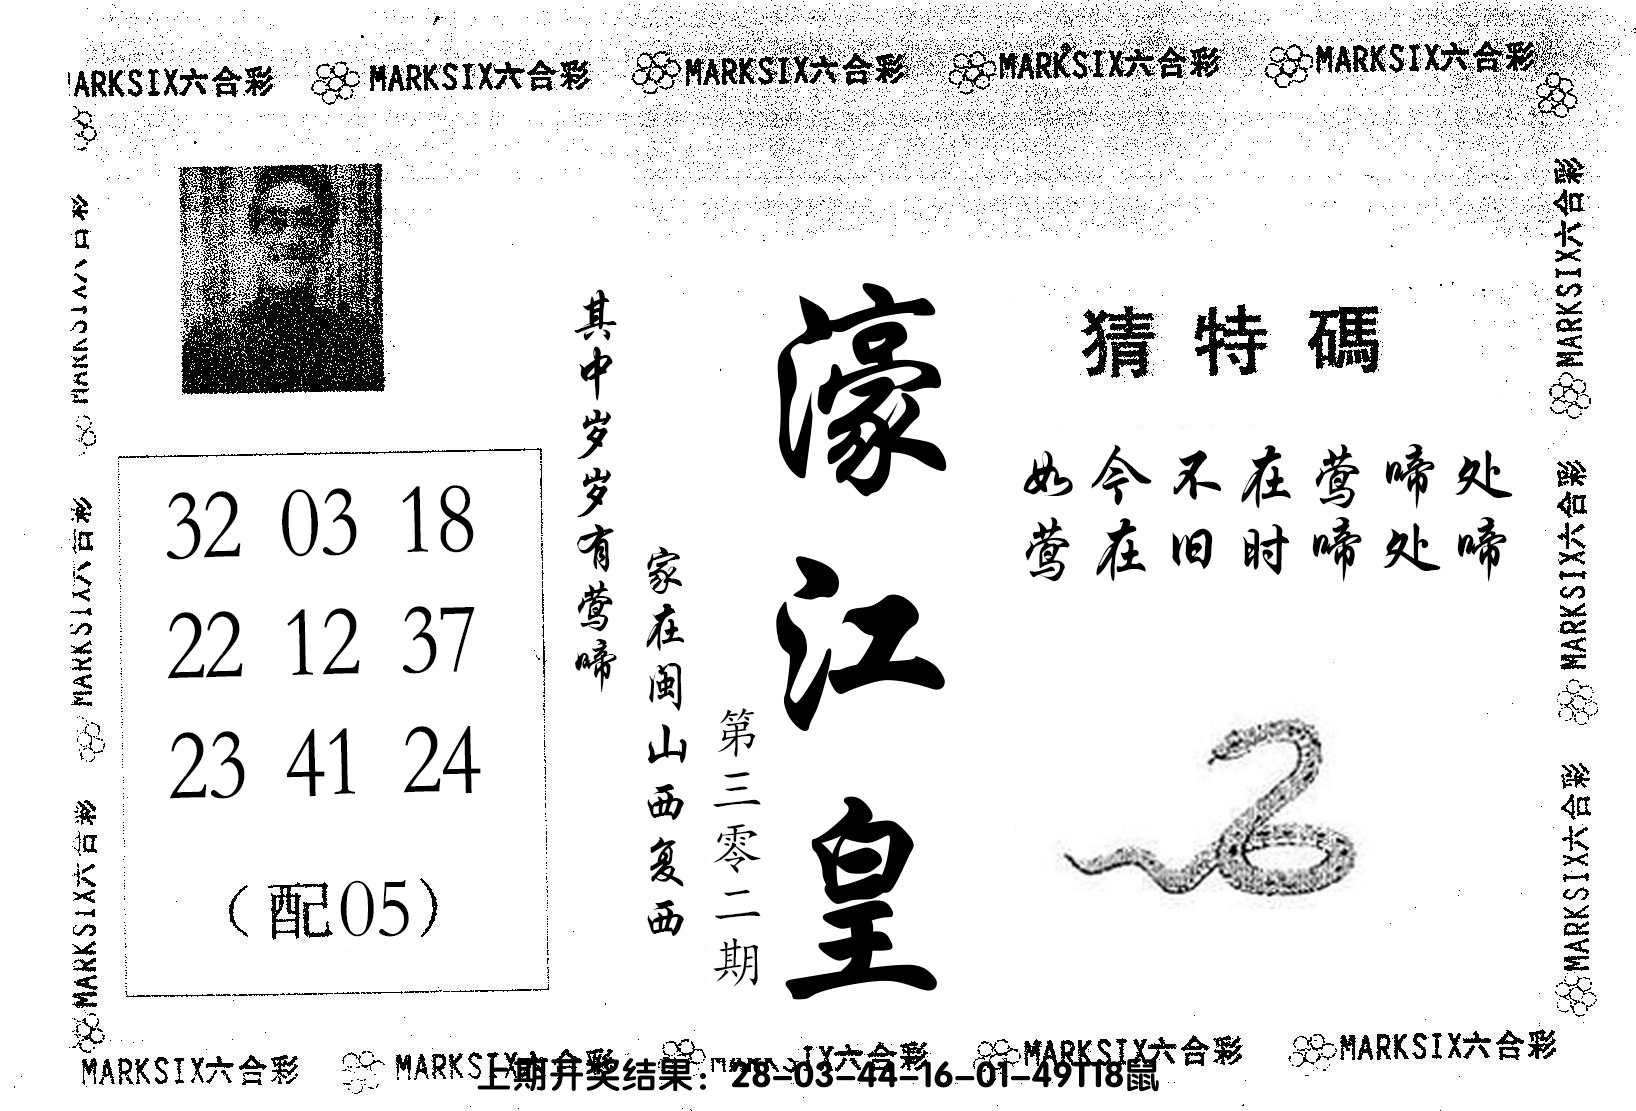 MARKSIX六合彩 MARKSIX六合彩 MARKSIX六合彩 MARKSIX六合彩 MARKSIX六合彩
MARKSIX六合彩
MARKSIX六合彩
MARKSIX六合彩
濠江皇
第三零二期
家在闽山西复西
其中岁岁有莺啼
猜特碼
如今不在莺啼处
莺在旧时啼处啼
32 03 18
22 12 37
23 41 24
(配05)
MARKSIX六合彩
MARKSIX六合彩
MARKSIX六合彩
MARKSIX六合彩 MARKSIX六合彩 IX六合彩 MARKSIX六合彩 MARKSIX六合彩
上期开奖结果：28-03-44-16-01-49T18鼠